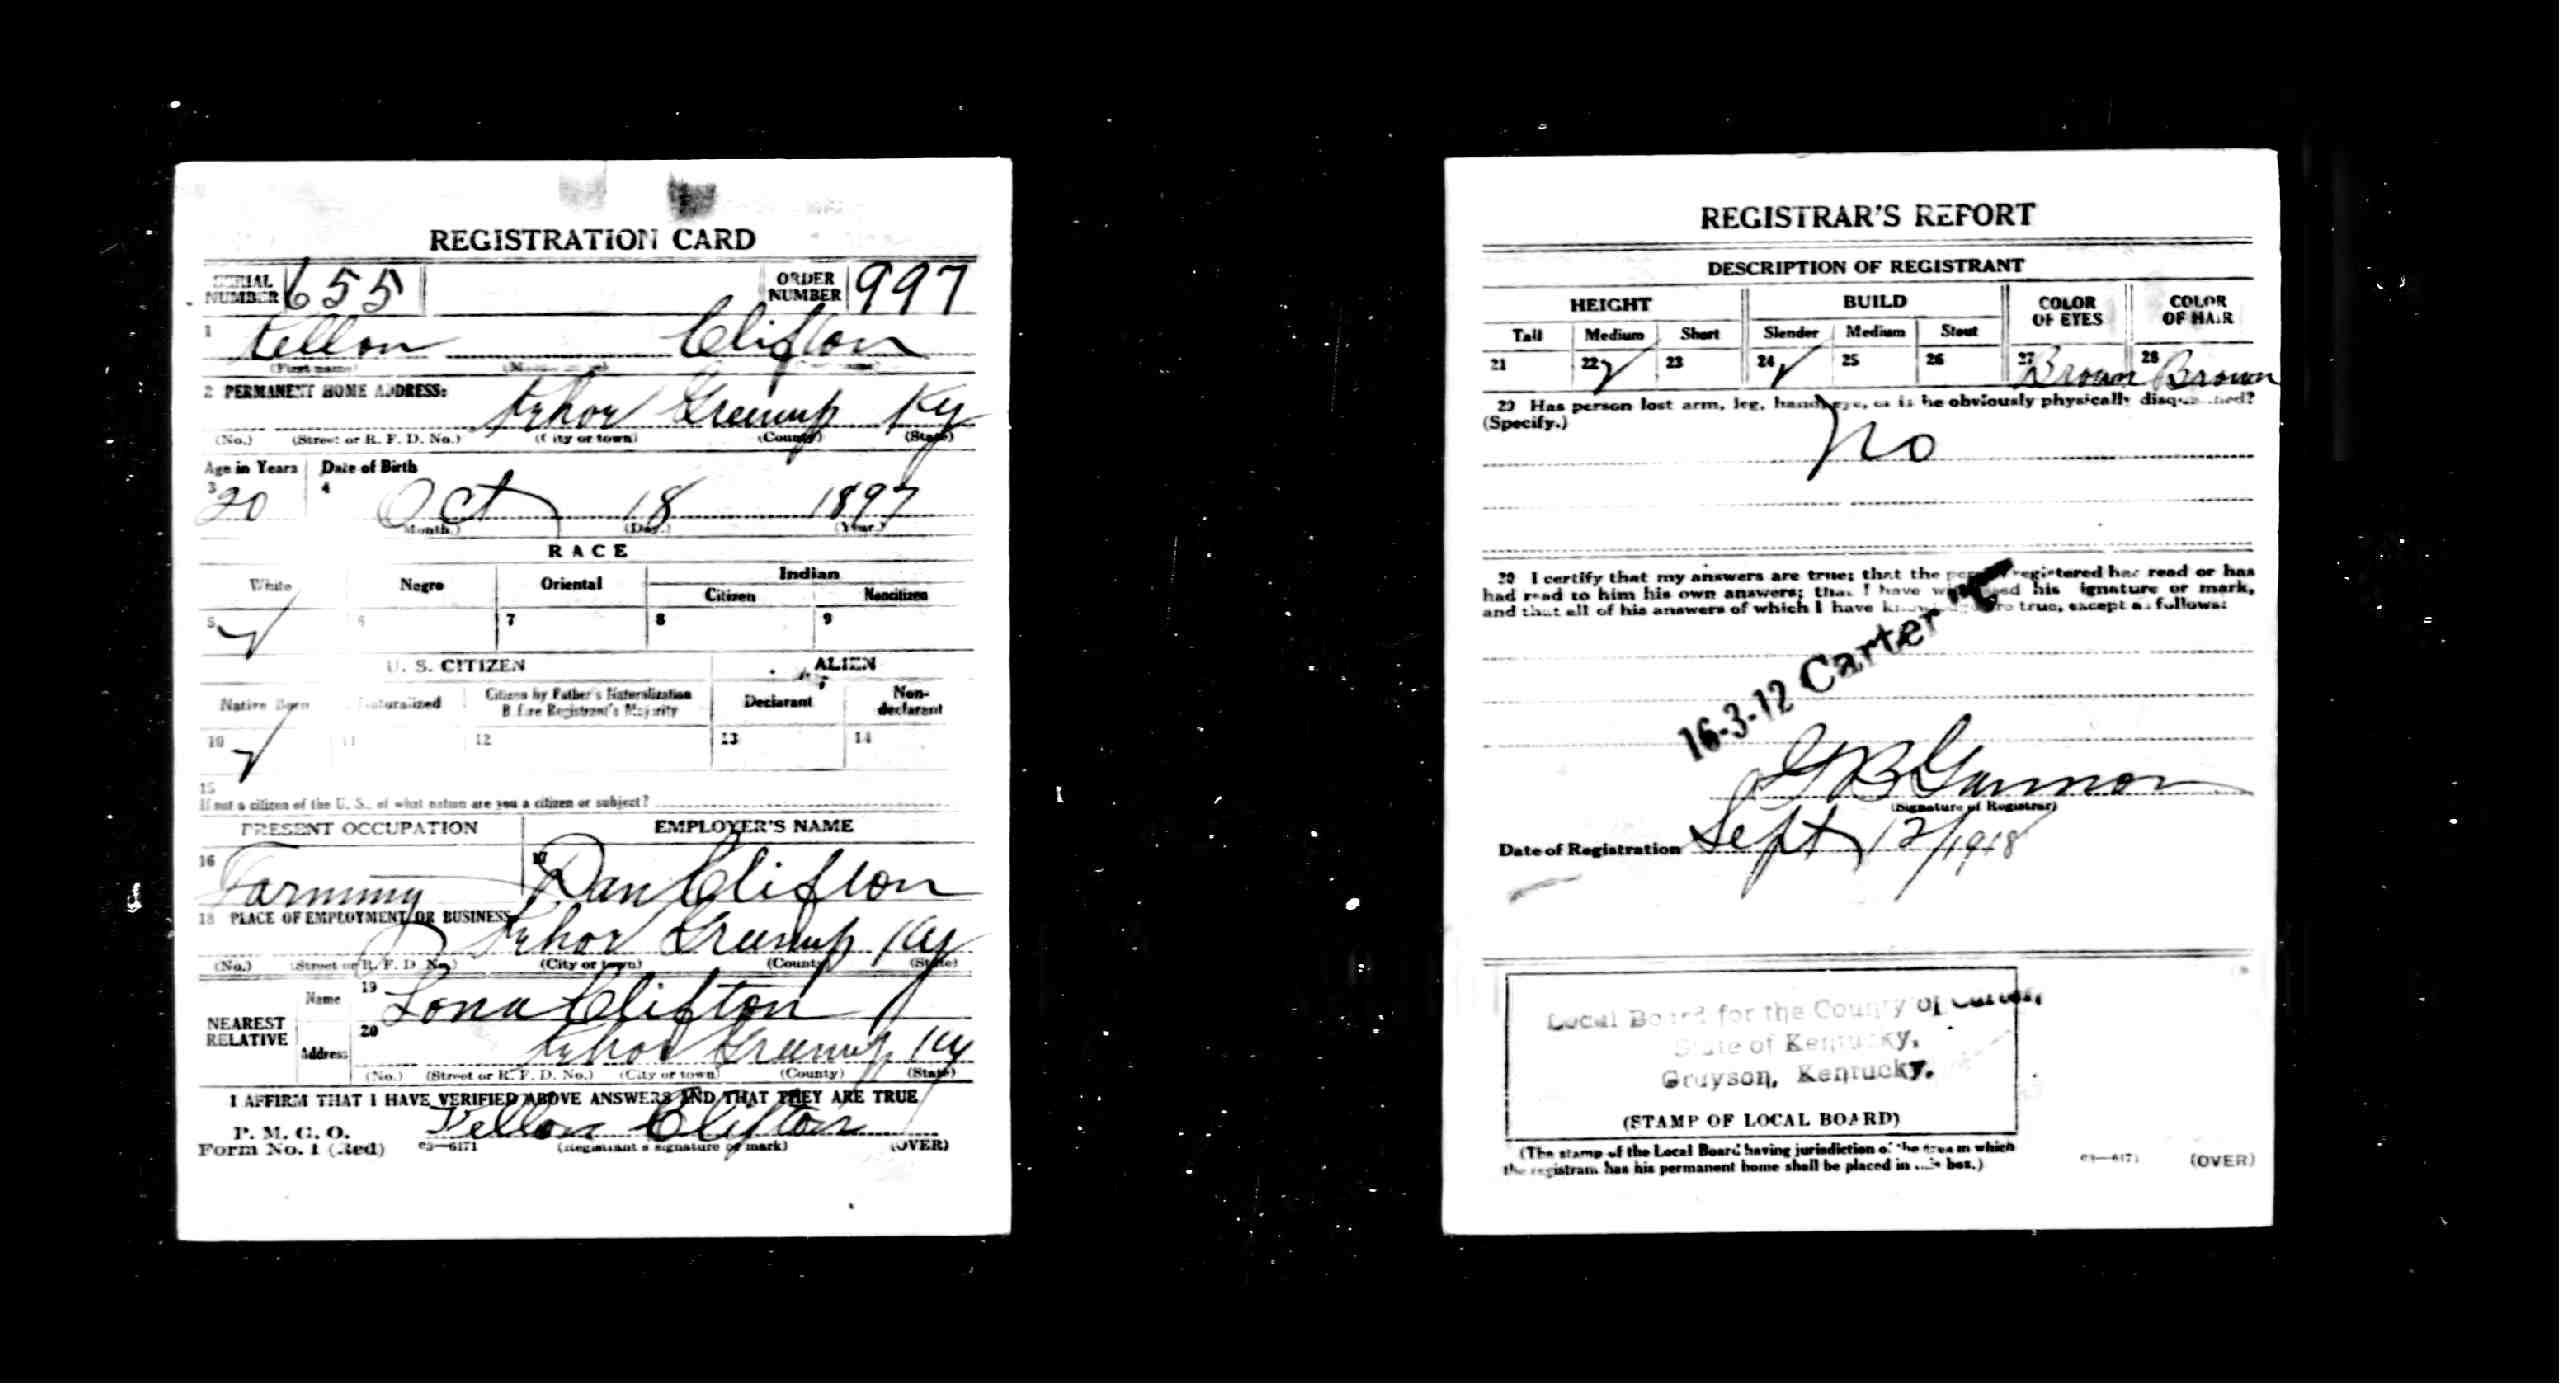 REGISTRATION CARD
SERIAL NUMBER 655 ORDER NUMBER 997
1 Clifton
(First name)
2 PERMANENT HOME ADDRESS:
Greenup Ky
(No.) (Street or R. F. D. No.) (City or town) (County) (State)
Age in Years Date of Birth
3 20 4 Oct 18 1897
(Month.) (Day.) (Year.)
RACE
White Negro Oriental Indian
Citizen Noncitizen
5 ✓ 6 7 8 9
U. S. CITIZEN ALIEN
Native Born Naturalized Citizen by Father's Naturalization Before Registrant's Majority Declarant Non-declarant
10 ✓ 11 12 13 14
15
If not a citizen of the U. S., of what nation are you a citizen or subject?
PRESENT OCCUPATION EMPLOYER'S NAME
16 Farming 17 Dan Clifton
18 PLACE OF EMPLOYMENT OR BUSINESS
Greenup Ky
(No.) (Street or R. F. D. No.) (City or town) (County) (State)
NEAREST RELATIVE
Name 19 Lona Clifton
Address 20 Greenup Ky
(No.) (Street or R. F. D. No.) (City or town) (County) (State)
I AFFIRM THAT I HAVE VERIFIED ABOVE ANSWERS AND THAT THEY ARE TRUE
P. M. G. O.
Form No. 1 (Red) 03—6171 Clifton
(Registrant's signature or mark) (OVER)
REGISTRAR'S REPORT
DESCRIPTION OF REGISTRANT
HEIGHT BUILD COLOR OF EYES COLOR OF HAIR
Tall Medium Short Slender Medium Stout
21 22 ✓ 23 24 ✓ 25 26 27 Brown 28 Brown
29 Has person lost arm, leg, hand, eye, or is he obviously physically disqualified?
(Specify.)
No
30 I certify that my answers are true; that the person registered has read or has
had read to him his own answers; that I have witnessed his signature or mark,
and that all of his answers of which I have knowledge are true, except as follows:
16-3-12 Carter
(Signature of Registrar)
Date of Registration Sept 12/1918
Local Board for the County of Carter,
State of Kentucky,
Grayson, Kentucky.
(STAMP OF LOCAL BOARD)
(The stamp of the Local Board having jurisdiction of the area in which
the registrant has his permanent home shall be placed in this box.)
03—6171 (OVER)